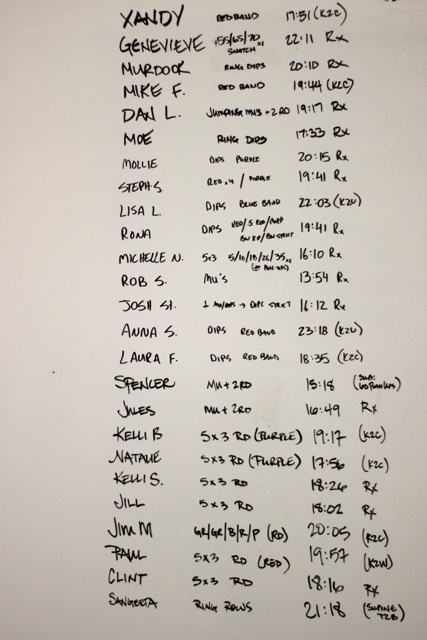 XANDY RED BAND 17:51 (K2C)
GENEVIEVE +55/65/70 SNATCH 22:11 Rx
MURDOCK RING DIPS 20:10 Rx
MIKE F. RED BAND 19:44 (K2C)
DAN L. JUMPING MU'S + 2 RD 19:17 Rx
MOE RING DIPS 17:33 Rx
MOLLIE DIPS PURPLE 20:15 Rx
STEPH S. RED / PURPLE 19:41 Rx
LISA L. DIPS BLUE BAND 22:03
RONA DIPS 19:41 Rx
MICHELLE N. 5x3 5/10/18/26/35 16:10 Rx
ROB S. MU'S 13:54 Rx
JOSH DIPS STRICT 16:12 Rx
ANNA S. DIPS RED BAND 23:18
LAURA F. DIPS RED BAND 18:35 (K2C)
SPENCER MU + 2RD 15:18
JULES MU + 2RD 16:49 Rx
KELLI B 5x3 RD (PURPLE) 19:17 (K2C)
NATALIE 5x3 RD (PURPLE) 17:56 (K2C)
KELLI S. 5x3 RD 18:26 Rx
JILL 5x3 RD 18:02 Rx
JIM M GR/GR/B/R/P (RD) 20:05 (K2C)
PAUL 5x3 RD (RED) 19:57
CLINT 5x3 RD 18:16 Rx
SANGEETA RING ROWS 21:18 (SUPINE T2B)